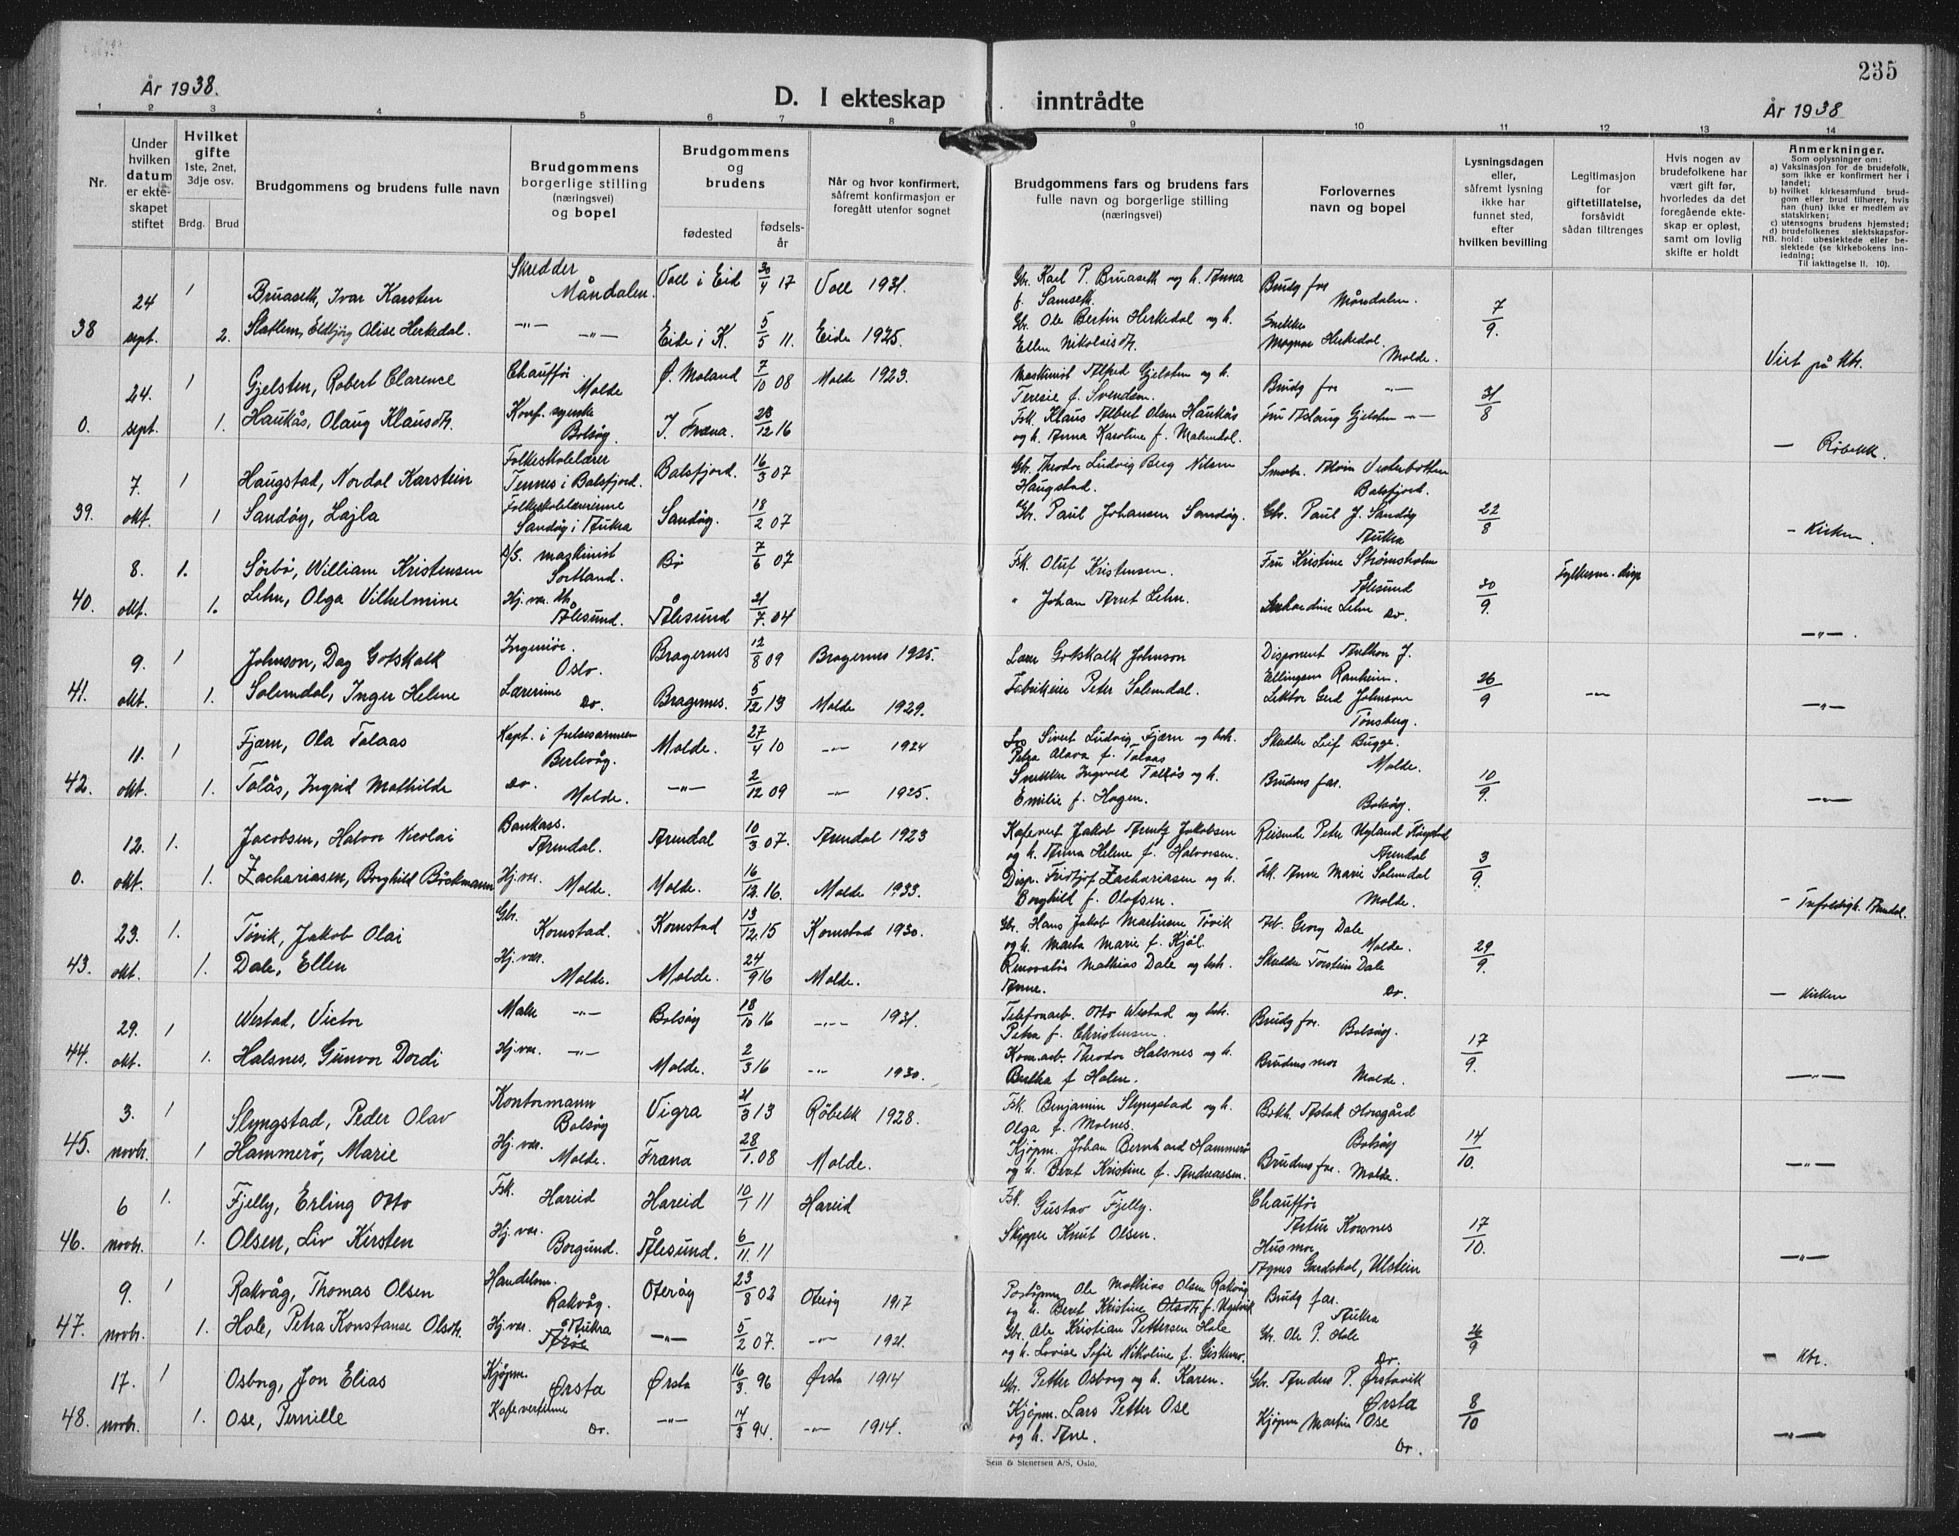 235
År 1938.
D. I ekteskap inntrådte
År 1938
1 2 3 4 5 6 7 8 9 10 11 12 13 14
Nr.
Under hvilken datum er ekteskapet stiftet
Hvilket gifte
1ste, 2net, 3dje osv.
Brdg. Brud
Brudgommens og brudens fulle navn
Brudgommens borgerlige stilling (næringsvei) og bopel
Brudgommens og brudens
fødested
fødselsår
Når og hvor konfirmert, såfremt konfirmasjon er foregått utenfor sognet
Brudgommens fars og brudens fars fulle navn og borgerlige stilling (næringsvei)
Forlovernes navn og bopel
Lysningsdagen eller, såfremt lysning ikke har funnet sted, efter hvilken bevilling
Legitimasjon for giftetillatelse, forsåvidt sådan tiltrenges
Hvis nogen av brudefolkene har vært gift før, hvorledes da det foregående ekteskap er opløst, samt om lovlig skifte er holdt
Anmerkninger.
Som oplysninger om:
a) Vaksinasjon for de brudefolk, som ikke er konfirmert her i landet;
b) hvilket kirkesamfund brudgom eller brud tilhører, hvis han (hun) ikke er medlem av statskirken;
c) utensogns brudens hjemsted;
d) brudefolkenes slektskapsforhold: ubeslektede eller beslektede (se kirkebokens innledning);
NB. Til iakttagelse II. 10).
24 1 Bruaseth, Ivar Karsten Skredder Måndalen. Voll i Eid 30/4 17 Voll 1931. Gbr. Karl P. Bruaseth og h. Anna f. Samseth. Brudg far Måndalen. 7/9.
38 sept. 2. Slatlem, Eldbjørg Olise Herkedal. -"- -"- Eide i K. 5/5 11. Eide 1925 Gbr. Ole Bertin Herkedal og h. Ellen Nikolaisdt. Snekker Magnar Herkedal. Molde. Viet på kbr.
24. 1 Gjelsten, Robert Clarence Chauffør Molde Ø. Moland 7/10 08 Molde 1923. Maskinist Alfred Gjelsten og h. Teresie f. Svendsen. Brudg far -"- 31/8
0. sept. 1. Haukås, Olaug Klausdt. Konf. syerske Bolsøy. I. Fræna. 28/12 16 Fsk. Klaus Albert Olsen Haukås og h. Anna Karoline f. Malmedal. Fru Aslaug Gjelsten -"- — Røbekk.
7. 1 Haugstad, Nordal Karstein Folkeskolelærer Tennes i Balsfjord. Balsfjord. 16/3 07 Gbr. Theodor Ludvig Berg Nilsen Haugstad. Balsfjord. 22/8
39. okt. 1 Sandøy, Lajla Folkeskolelærerinne Sandøy i Aukra Sandøy. 18/2 07 Gbr. Paul Johansen Sandøy. Gbr. Paul J. Sandøy Aukra - Kirken
8. 1. Sörbö, William Kristensen D/S. maskinist Sortland. Bø 7/6 07 Fsk. Oluf Kristensen. Fru Kristine Strømsholm Ålesund 30/9. Fylkesm. disp
40. okt. 1. Lehn, Olga Vilhelmine Hj. vær. Ålesund. Ålesund 21/7. 04 " Johan Arnt Lehn. Lehn Do. -"-.
9. 1 Johnson, Dag Gotskalk Ingeniør Oslo. Bragernes 12/8 09 Bragernes 1925. Lærer Gotskalk Johnson Disponent Ellingsen Ranheim. 26/9 -"-
41. okt. 1. Solemdal, Inger Helene Lærerinne Do. Bragernes. 5/12 13 Molde 1929. Fabrikeier Peter Solemdal. Lektor Gerd Johnson Tønsberg. -"-
11. 1 Fjærn, Ola Talaas Kapt. i frelsesarmeen Berlevåg. Molde. 27/4 10 -"- 1924 Sivert Ludvig Fjærn og h. Petra Olava f. Talaas Skredder Leif Bugge. Molde. 10/9.
42. okt. 1. Talås, Ingrid Mathilde Do. Molde. -"- 2/12 09 -"- 1925. Snekker Ingvald Talås og h. Emilie f. Hagen. Brudens far. Bolsøy. -"-
12. 1. Jacobsen, Halvor Nicolai Bankass. Arendal. Arendal 10/3 07. Arendal 1923 Kafevert Jakob Arntz Jakobsen og h. Anna Helene f. Halvorsen. Reisende Peter Ugland Arendal 3/9.
0. okt. 1. Zachariasen, Borghild Böckmann Hj. vær. Molde. Molde. 16/12. 16. Molde 1933. Disp. Fridtjof Zachariasen og h. Borghild f. Olafsen. Frk. Anne Marie Solemdal Molde. - Arendal.
23. 1. Tövik, Jakob Olai Gbr. Kornstad. Kornstad 13/12. 15 Kornstad 1930. Gbr. Hans Jakob Martinsen Tövik og h. Marta Marie f. Kjøl. Georg Dale Molde. 29/9.
43. okt. 1. Dale, Ellen Hj. vær. Molde. Molde. 24/9 16 Molde. Renovatør Mathias Dale og h. Anne. Skredder Torstein Dale Do. — Kirken
29. 1 Westad, Victor Maler -"- Bolsøy 18/10 16 -"- 1931. Telefonarb. Otto Westad og h. Petra f. Christensen. Brudg far. Bolsøy. 17/9.
44. okt. 1. Halsnes, Gunvor Dordi Hj. vær. -"- Molde. 2/3 16 -"- 1930. Kom.arb. Theodor Halsnes og h. Bertha f. Holen. Brudens mor Molde. -"-
3. 1 Slyngstad, Peder Olav Kontormann Bolsøy Vigra 21/3 13 Røbekk 1928. Fsk. Benjamin Slyngstad og h. Olga f. Molnes. Bokh. Horsgård Bolsøy 14/10.
45. novbr. 1 Hammerö, Marie Hj. vær. Molde. Fræna 28/1. 08 Molde. Kjøpm. Johan Bernhard Hammerö og h. Beret Kristine f. Andreassen. Brudens far. Molde. -"-
6 1. Fjelly, Erling Otto Fsk. Hareid Hareid 10/1 11 Hareid Fsk. Gustav Fjelly. Chauffør Artur Korsnes 17/10.
46. novbr. 1. Olsen, Liv Kirsten Hj. vær. Borgund. Ålesund. 6/11 11 Skipper Knut Olsen. Husmor Agnes Ulstein -"-
9. 1 Rakvåg, Thomas Olsen Handelsm. Rakvåg. Oterøy 23/8 02 Oterøy 1917 Ole Mathias Olsen Rakvåg og h. Beret Kristine Brudg far. Aukra 26/9
47. novbr. 1. Hole, Petra Konstanse Olsdt. Hj. vær. Aukra -"- 5/2 07. -"- 1921. Gbr. Ole Kristian Pettersen Hole og h. Lovise Sofie Nikoline f. Gbr. Ole P. Hole Do. — Kbr.
17. 1 Osborg, Jon Elias Kjøpm. Ørsta Ørsta 16/3. 96 Ørsta 1914 Gbr. Petter Osborg og h. Karen. Gbr. Anders P. Ørstavik Ørsta 8/10
48. novbr. 1. Ose, Pernille Kafevertinne Do. -"- 14/3 94. -"- 1914. Kjøpm. Lars Petter Ose og h. Ane. Kjøpm Martin Ose Do. -"-
Sem & Stenersen A/S, Oslo.